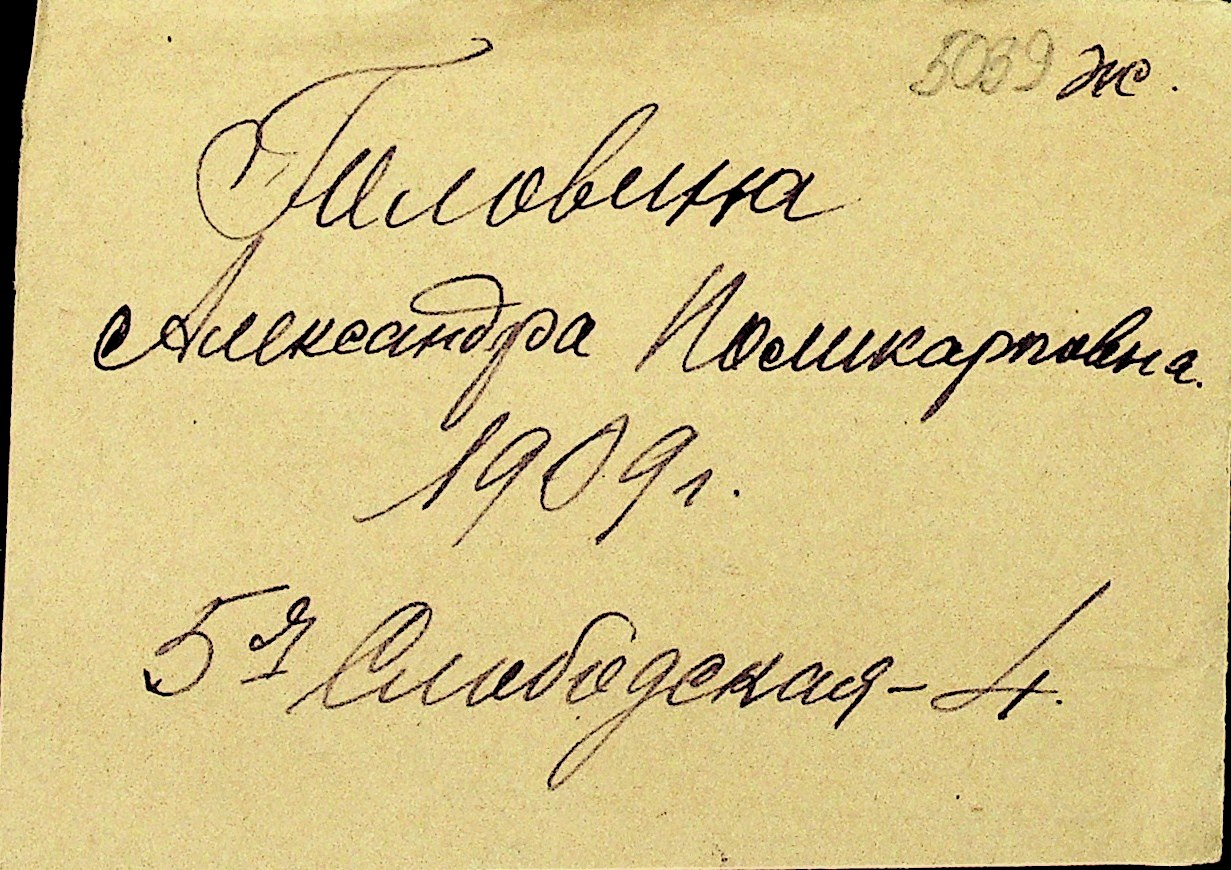 5039 ж.
Головина
Александра Поликарповна.
1909 г.
5я Слободская - 4.